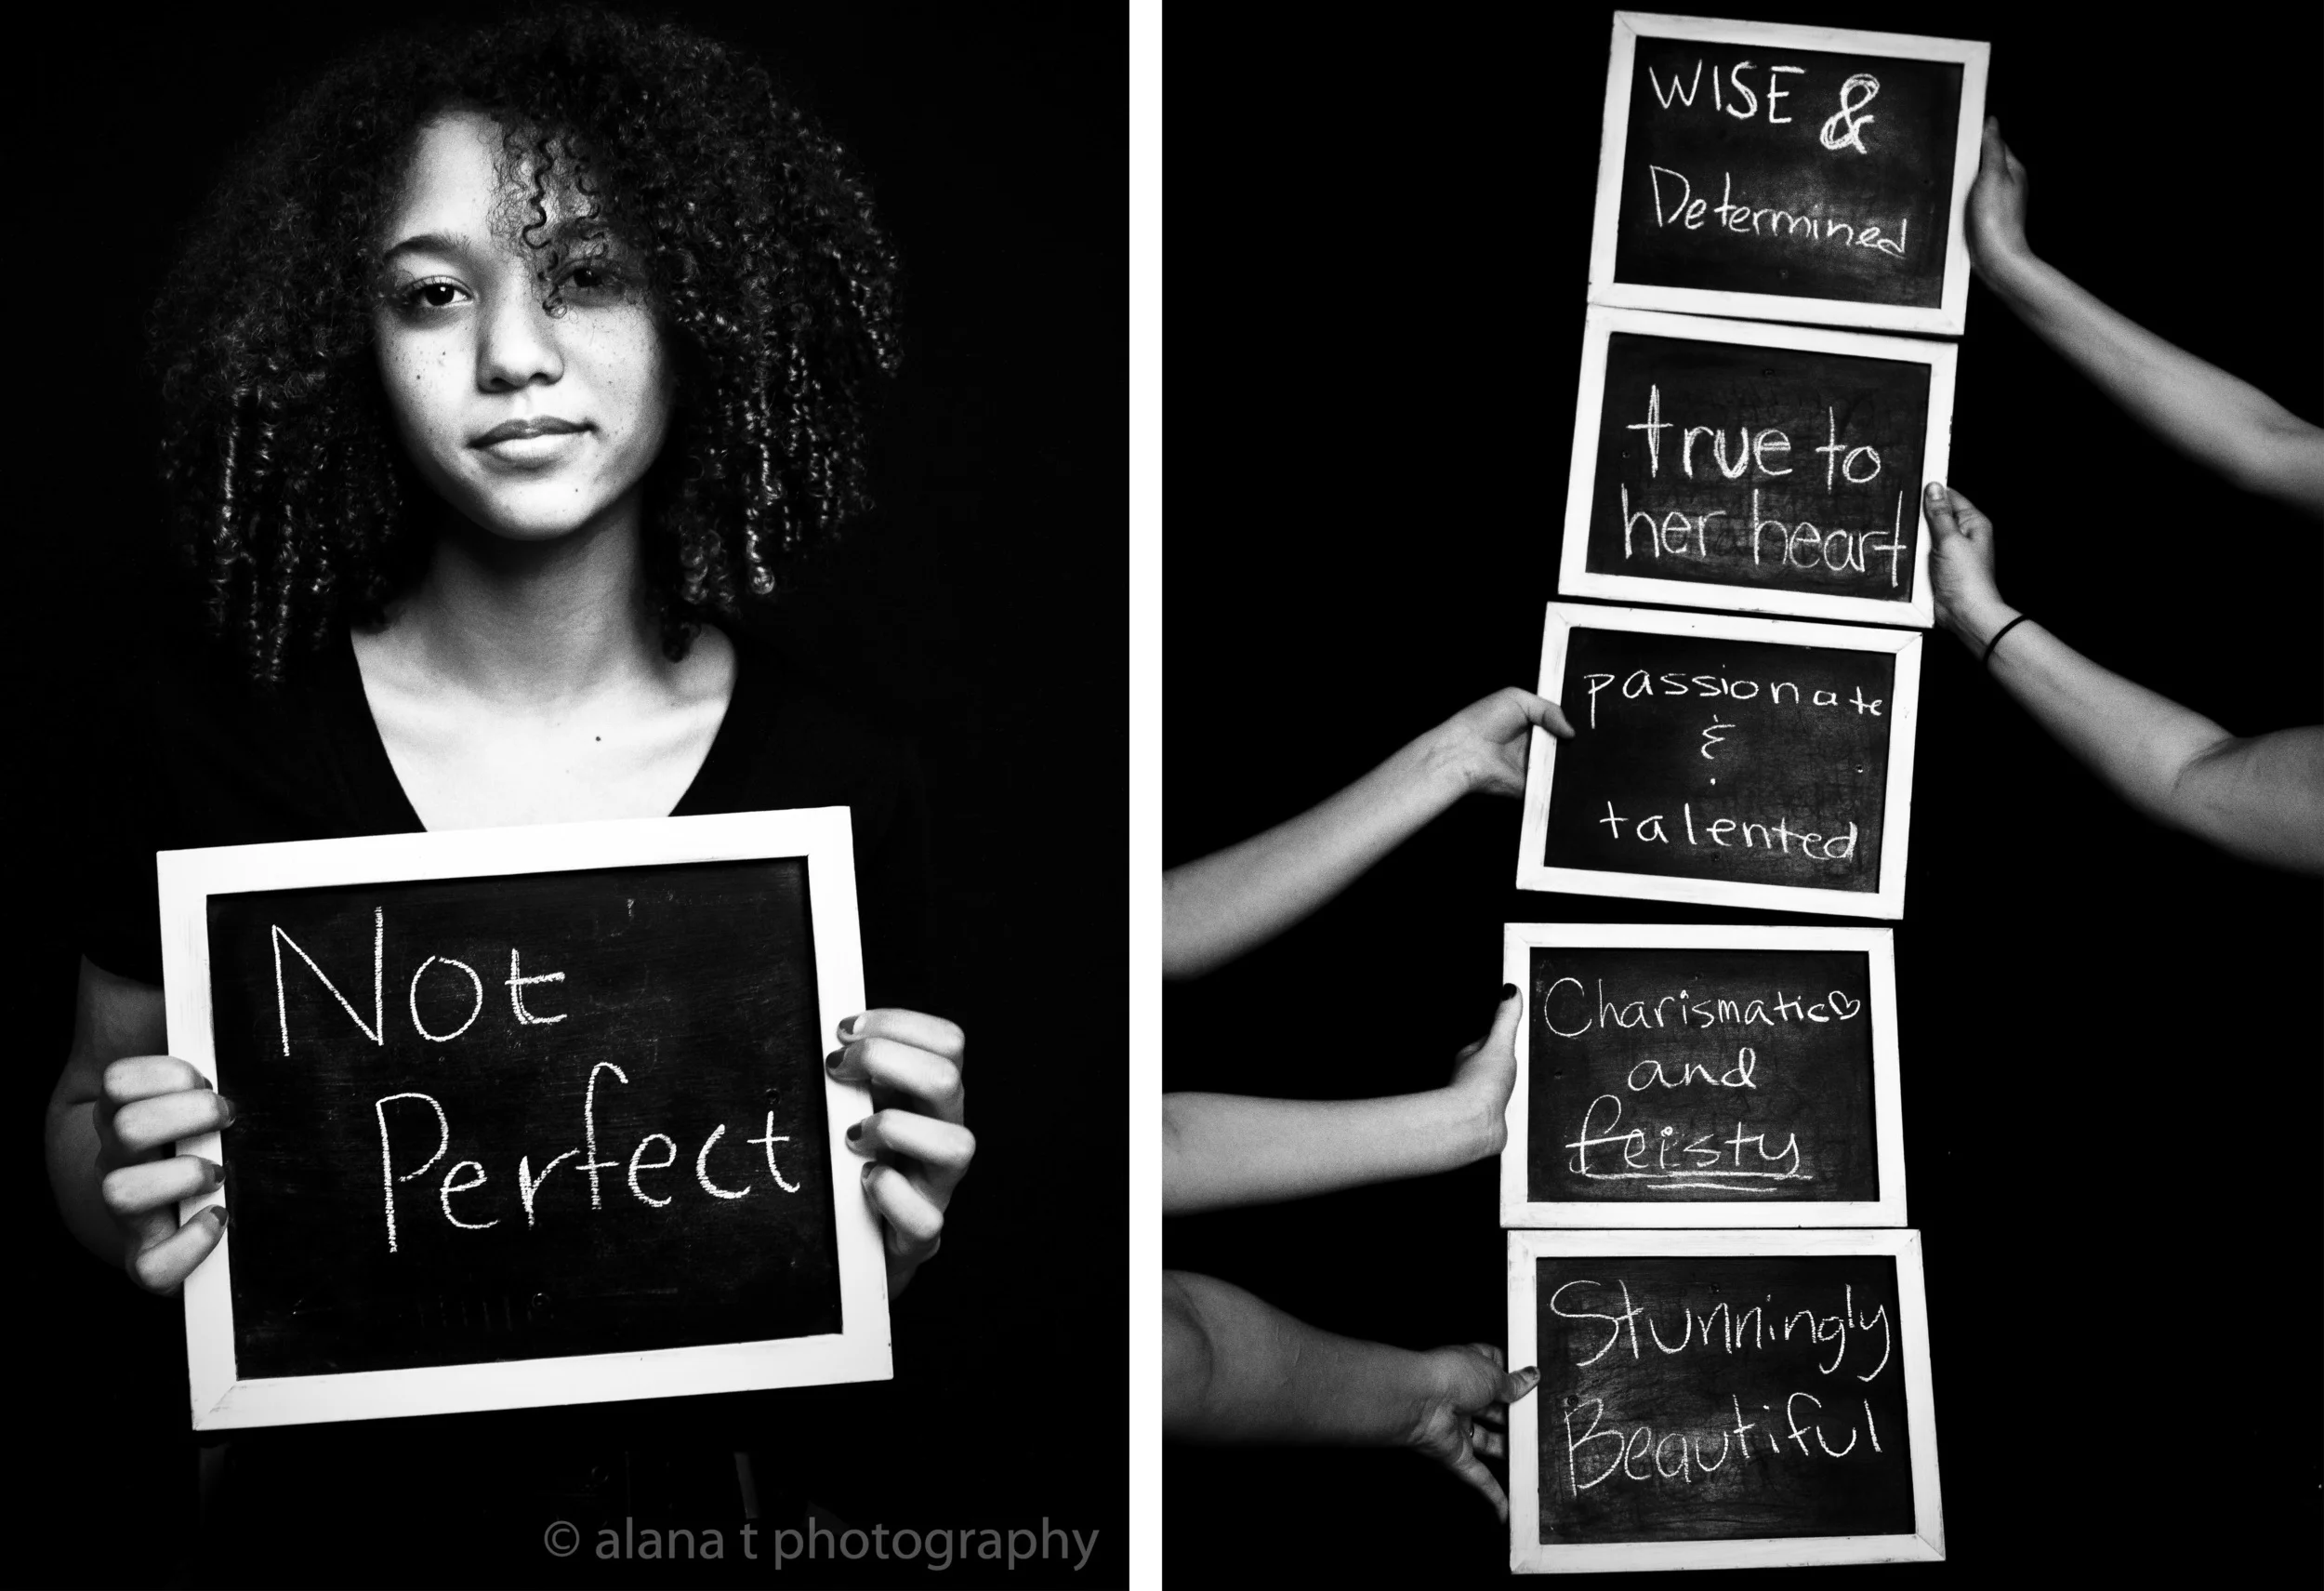 Not
Perfect
© alana t photography
WISE &
Determined
true to
her heart
passionate
&
talented
Charismatic♡
and
feisty
Stunningly
Beautiful